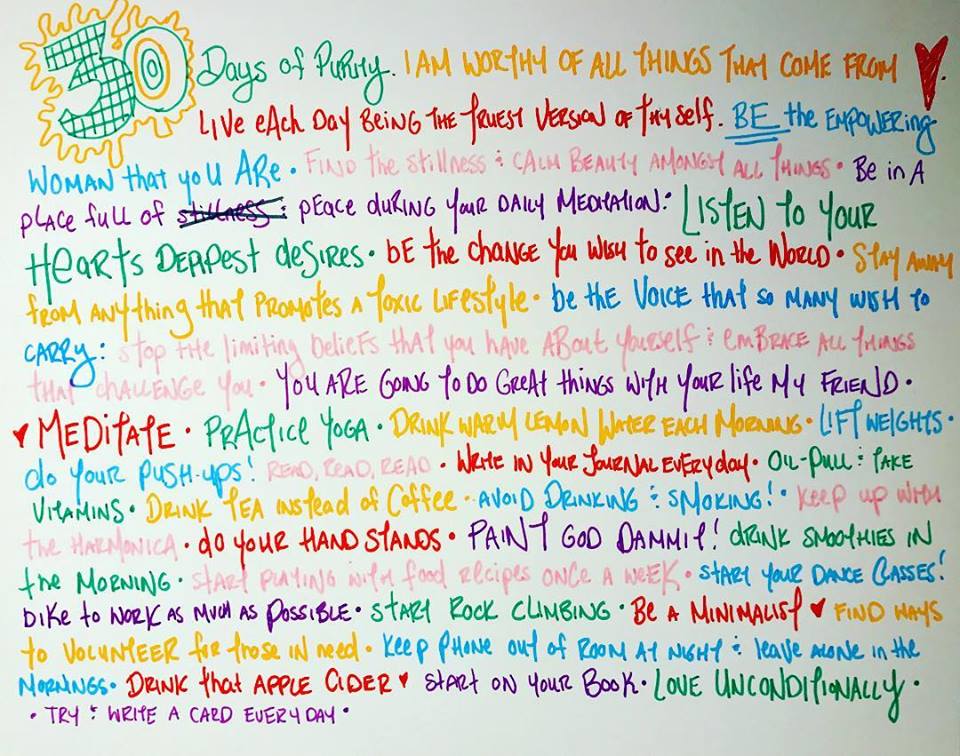 30 Days of Purity. I AM WORTHY OF ALL THINGS THAT COME FROM ♥.
LIVE eACh Day BEING THE TRUEST VERSION OF THY self. BE the EMPOWERing
WOMAN that yoU ARe • FIND the stillness & CALM BEAUTY AMONGST ALL THINGS • Be in A
PLACE full of stillness & PEACE duRING YOUR DAILY MEDITATION: LISTEN to YOUR
HeARTS DEAPEST desIRES • bE the CHANGE YOU WISH to see in the WORLD • Stay AWAY
fROM ANYthing that PROMOTES A TOXIC LIFEstyle • be the VOICE that so MANY WISH to
CARRY: Stop the limiting belieFs that you have ABout Yourself & emBRACE ALL THINGS
THAT CHALLENGE YOU • YOU ARE GOING TO DO GREAT things WITH YOUR life MY FRIEND •
♥ MEDITATE • PRActice YOGA • DRINK WARM LEMON WATER EACH MORNING • LIFT WEIGHTS •
do YOUR PUSH-UPS! READ, READ, READ • WRITE IN YOUR JOURNAL EVERYday • OIL-PULL & TAKE
VITAMINS • DRINK TEA INstead of Coffee • AVOID DRINKING & SMOKING! • Keep up WITH
the HARMONICA • dO YOUR HAND STANDS • PAINT GOD DAMMIT! dRINK SMOOTHIES IN
the MORNING • START PLAYING WITH food RECIPES ONCE A WEEK • START YOUR DANCE CLASSES!
bIKe to WORK AS MUCH AS POSSIBLE • START ROCK CLIMBING • Be A MINIMALIST ♥ FIND WAYS
to VOLUNTEER foR those IN need • Keep PHONE out of ROOM AT NIGHT & leave ALONE in the
MORNINGS • DRINK that APPLE CIDER ♥ START ON YOUR BOOK • LOVE UNCONDITIONALLY •
• TRY & WRITE A CARD EVERYDAY •